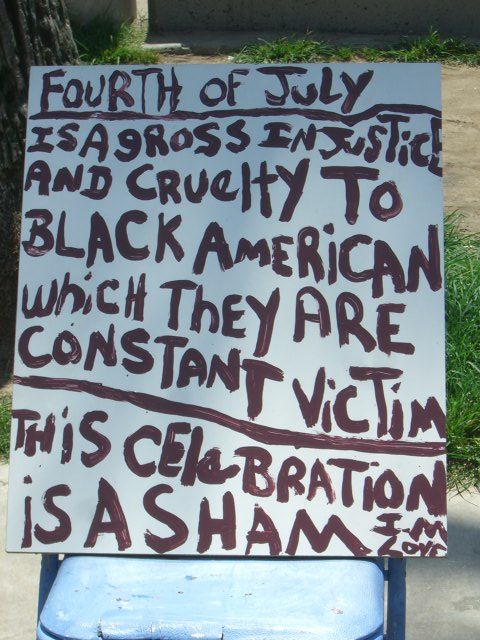 FOURTH OF JULY
IS A gROSS INJUSTICE
AND CRUeLTY TO
BLACK AMERiCAN
WHiCH THEY ARE
CONSTANT VICTiM
THiS CEleBRATiON
iS A SHAM I-M